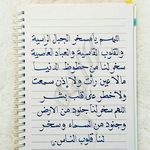 اللهم يا مسخر الجبال الراسية
والقلوب القاسية والعباد العاصية
سخر لنا من حظوظ الدنيا
مالا عين رأت ولا إذن سمعت
ولا خطر على قلب بشر
اللهم سخر لنا جنود من الارض
وجنود من السماء وسخر
لنا قلوب الناس